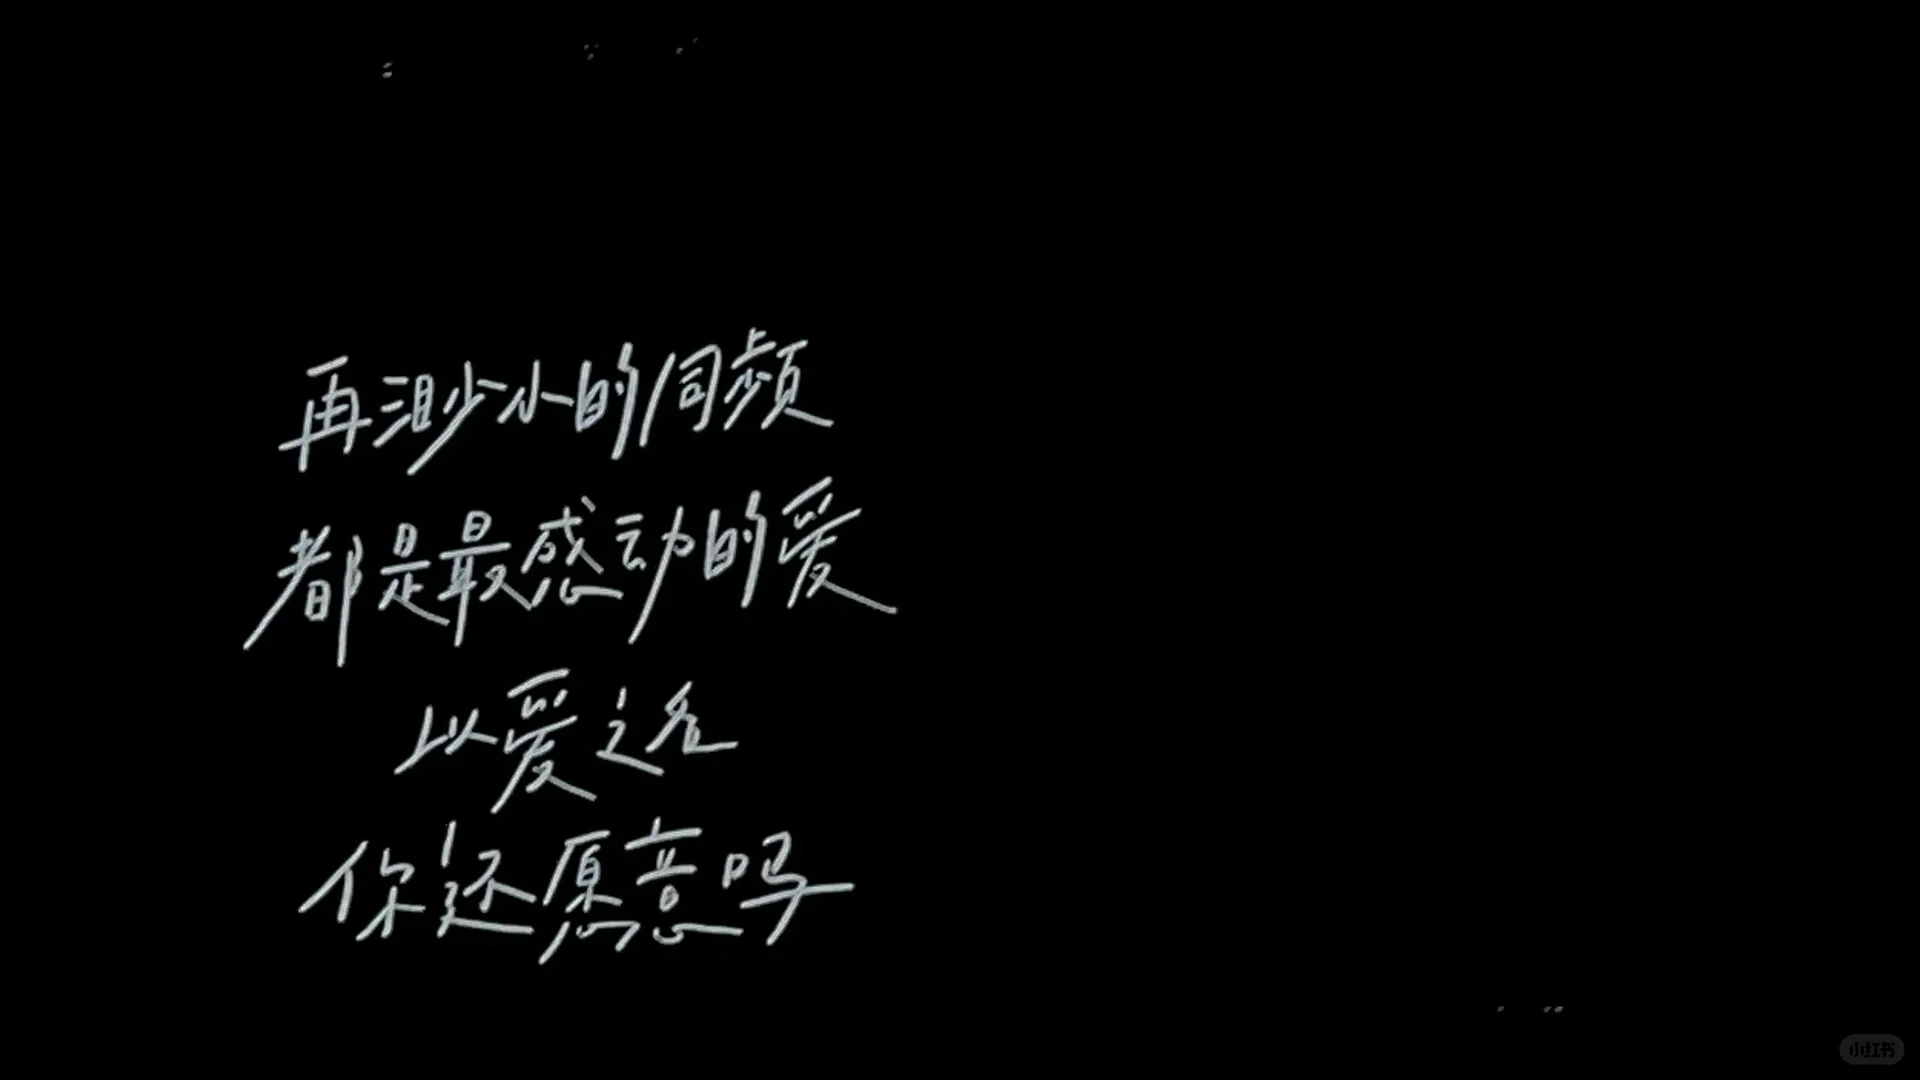 再渺小的同频
都是最感动的爱
以爱之名
你还愿意吗
小红书